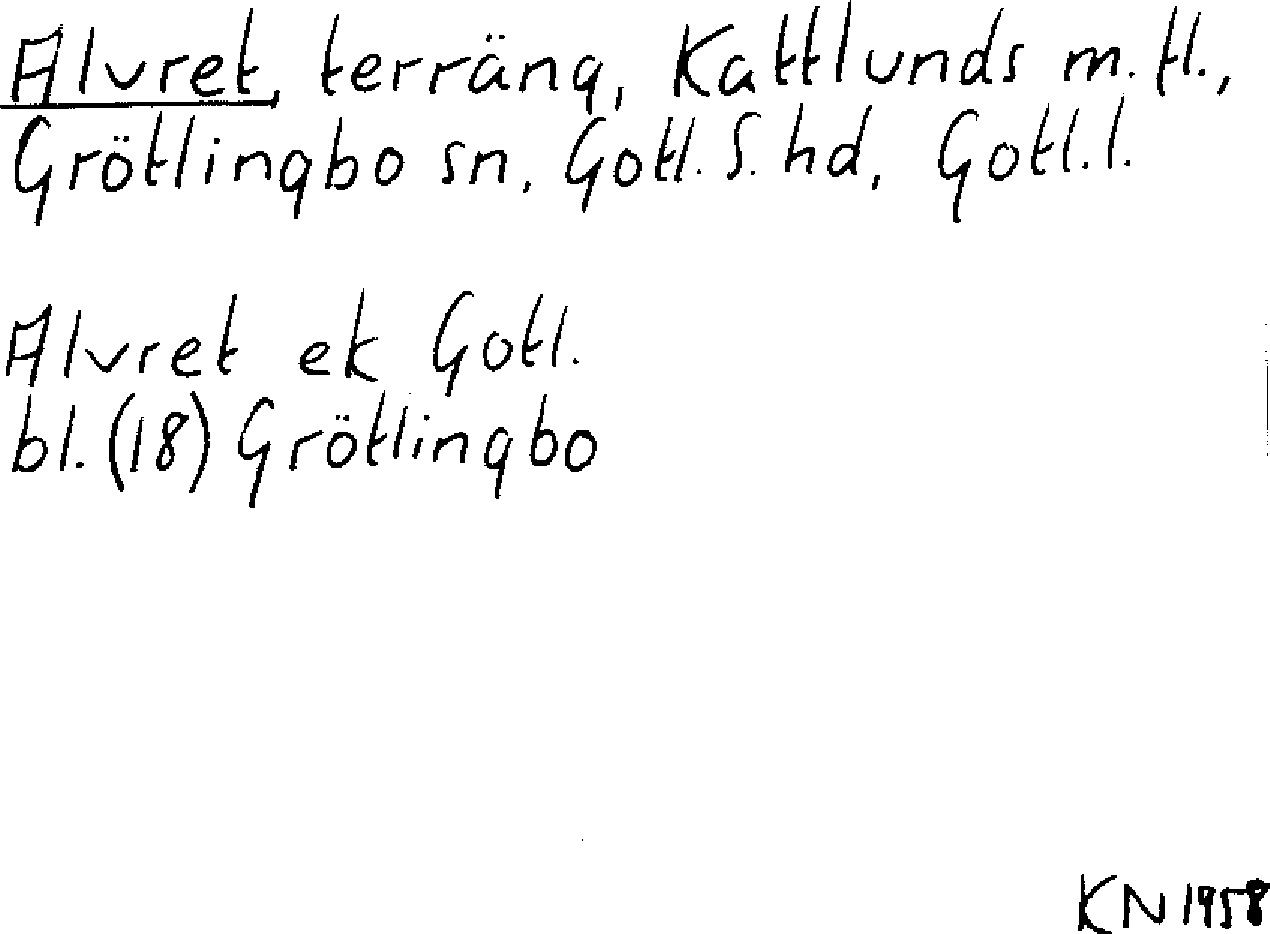 Alvret, terräng, Kattlunds m.fl.,
Grötlingbo sn, Gotl. S. hd, Gotl.l.
Alvret ek Gotl.
bl. (18) Grötlingbo
KN 1958